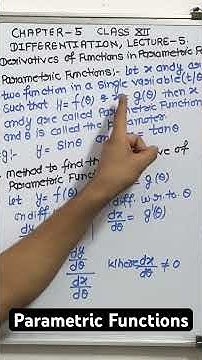 CHAPTER-5 CLASS XII
DIFFERENTIATION, LECTURE-5.
Derivatives of Functions in Parametric F
Parametric Functions:- Let x and y are
two function in a single variable (t/θ
Such that y = f(θ) & g(θ) then x
and y are called Parametric Function
and θ is called the Parameter
y = sinθ = tanθ
method to find the ve of
Parametric Function
Let y = f(θ) = g(θ)
on diff diff. w.r. to θ
dy dx/dθ = g'(θ)
dy/dθ
dx/dθ
where dx/dθ ≠ 0
Parametric Functions